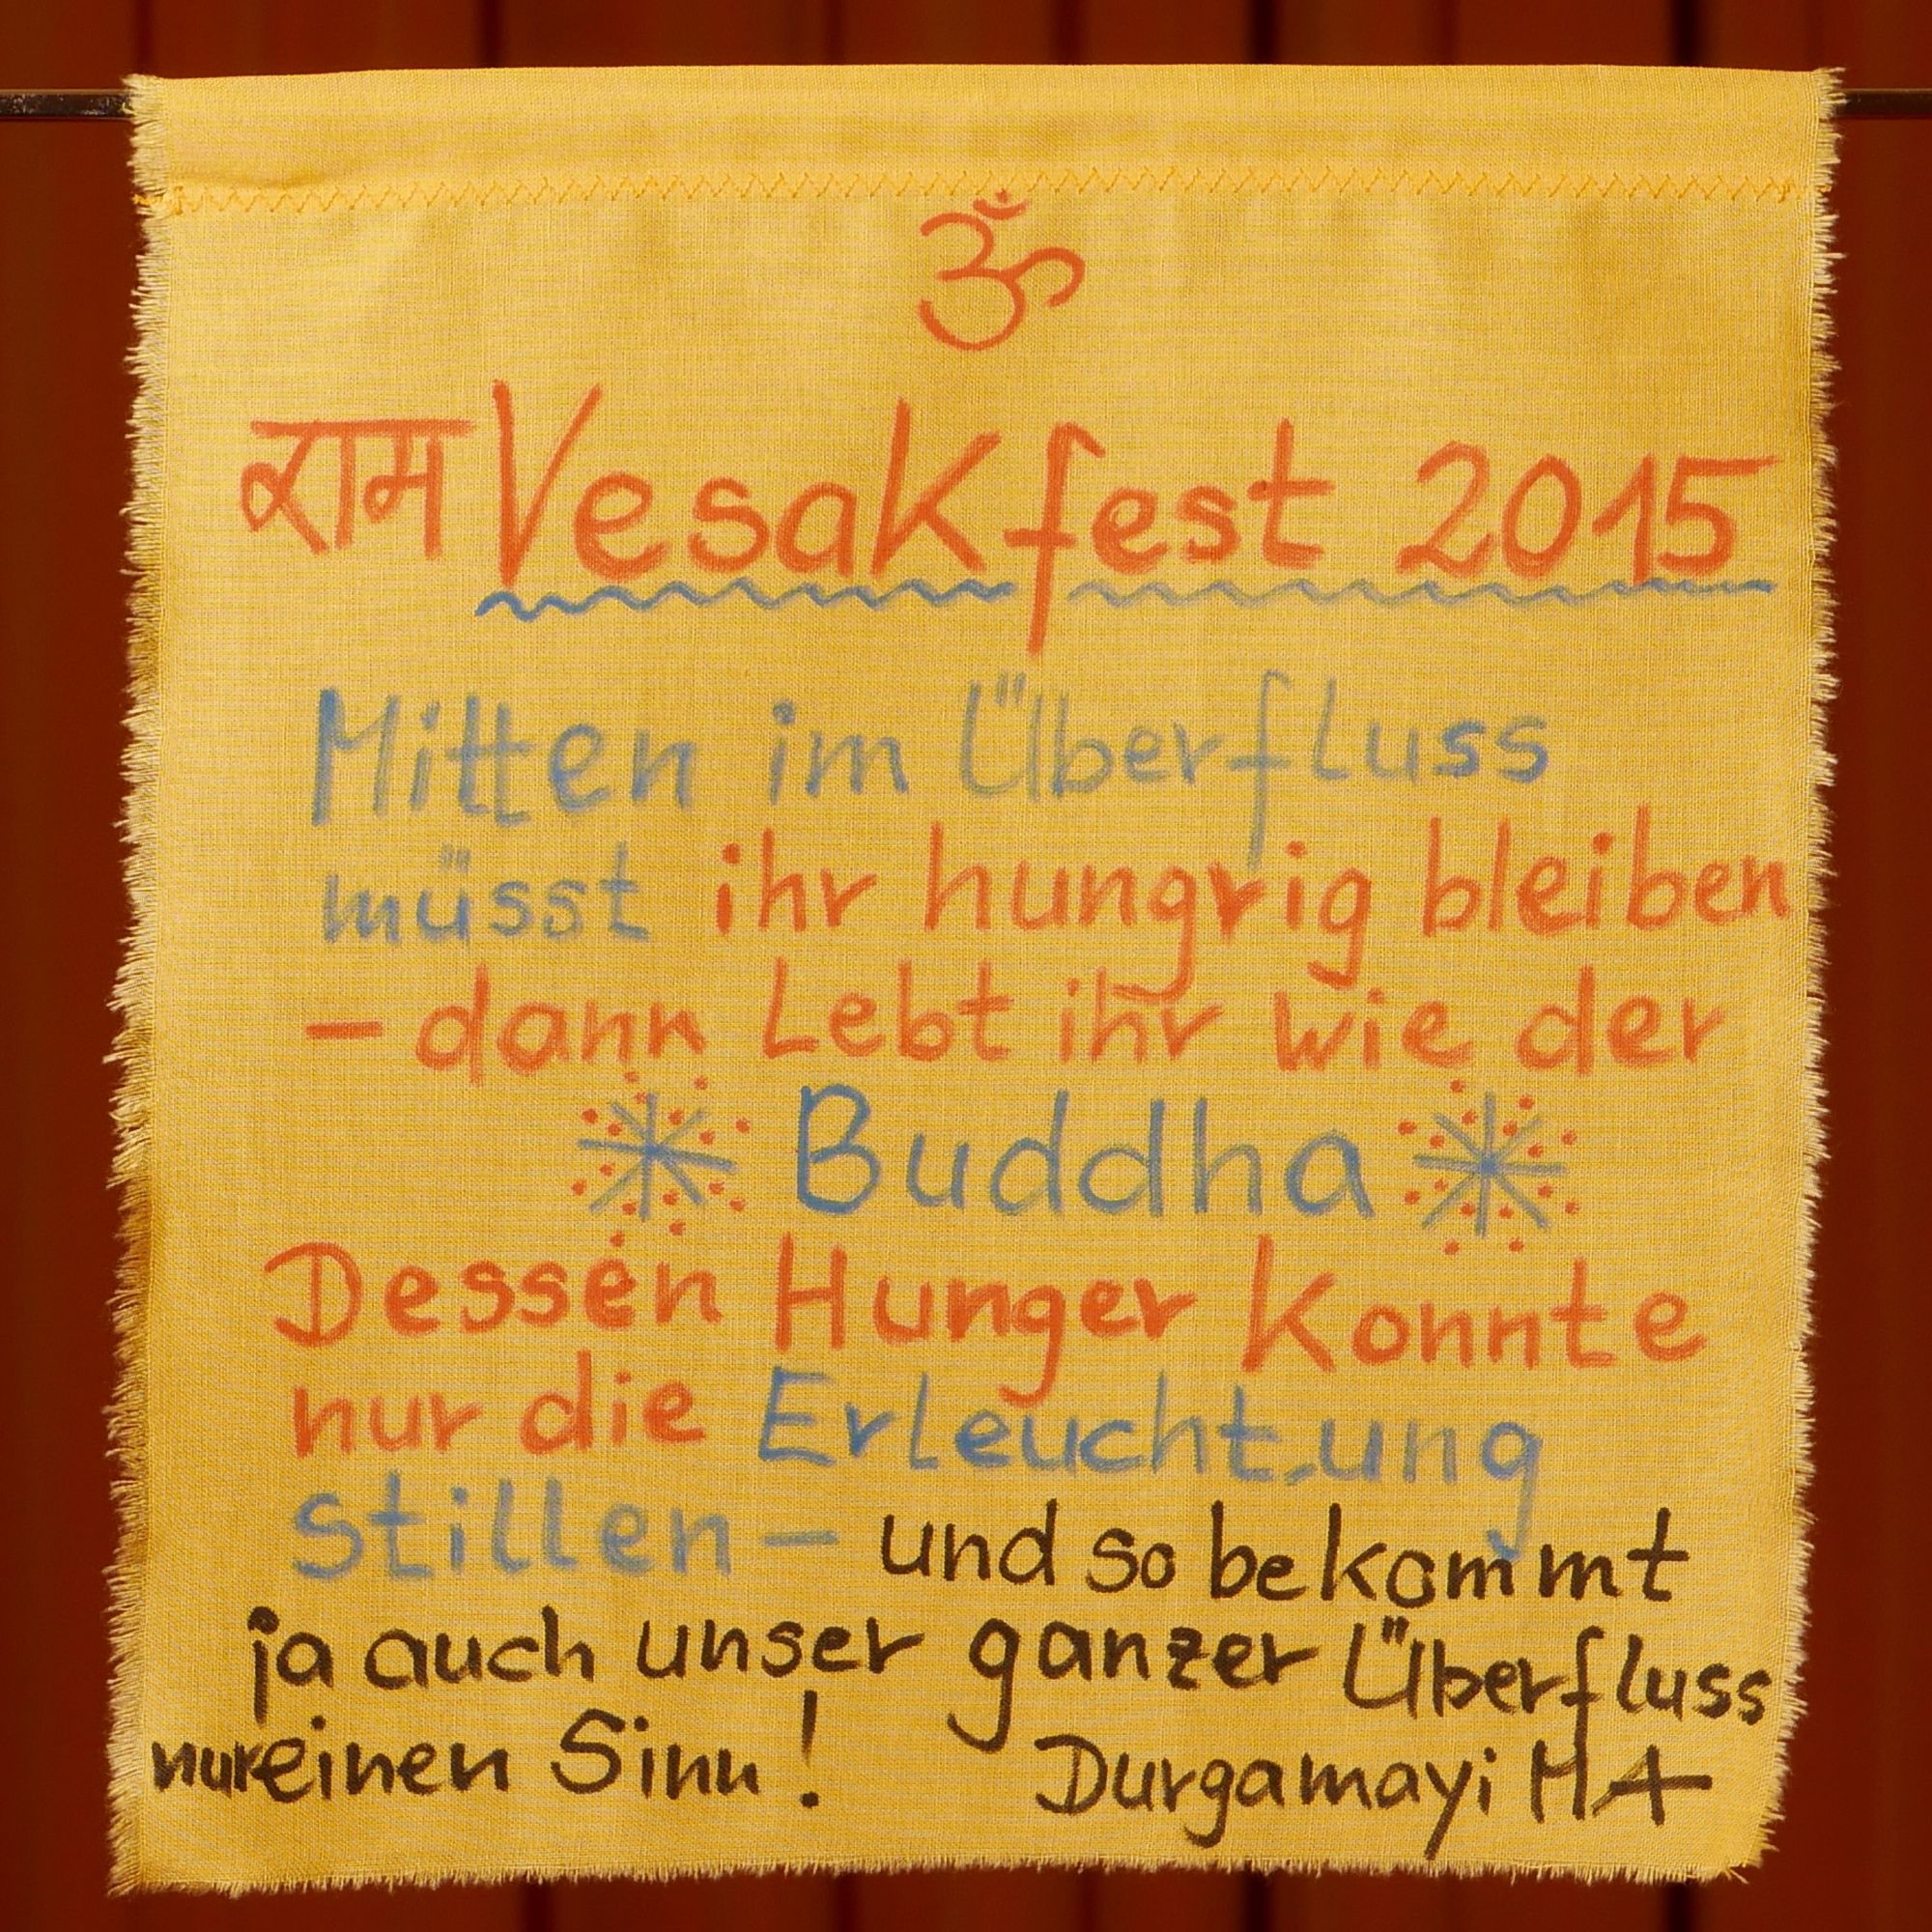 ॐ
राम Vesakfest 2015
Mitten im Überfluss
müsst ihr hungrig bleiben
– dann Lebt ihr wie der
Buddha
Dessen Hunger Konnte
nur die Erleuchtung
stillen – und so bekommt
ja auch unser ganzer Überfluss
nur einen Sinn! Durgamayi MA